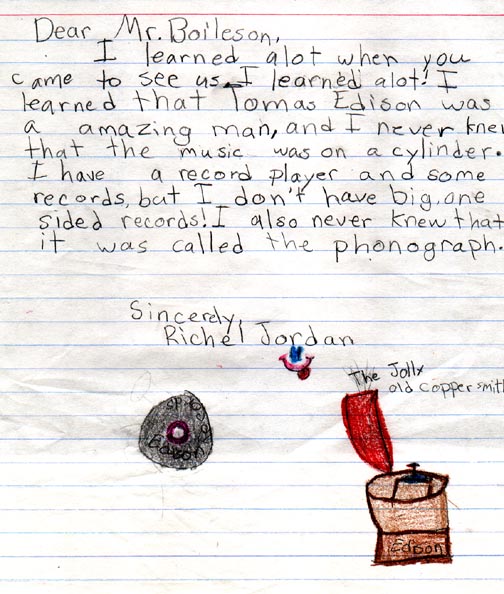 Dear Mr. Boileson,
I learned alot when you
came to see us. I learned alot! I
learned that Tomas Edison was
a amazing man, and I never knew
that the music was on a cylinder.
I have a record player and some
records, but I don't have big, one
sided records! I also never knew that
it was called the phonograph.
Sincerely,
Richel Jordan
The Jolly
old Coppersmith
Edison
Edison